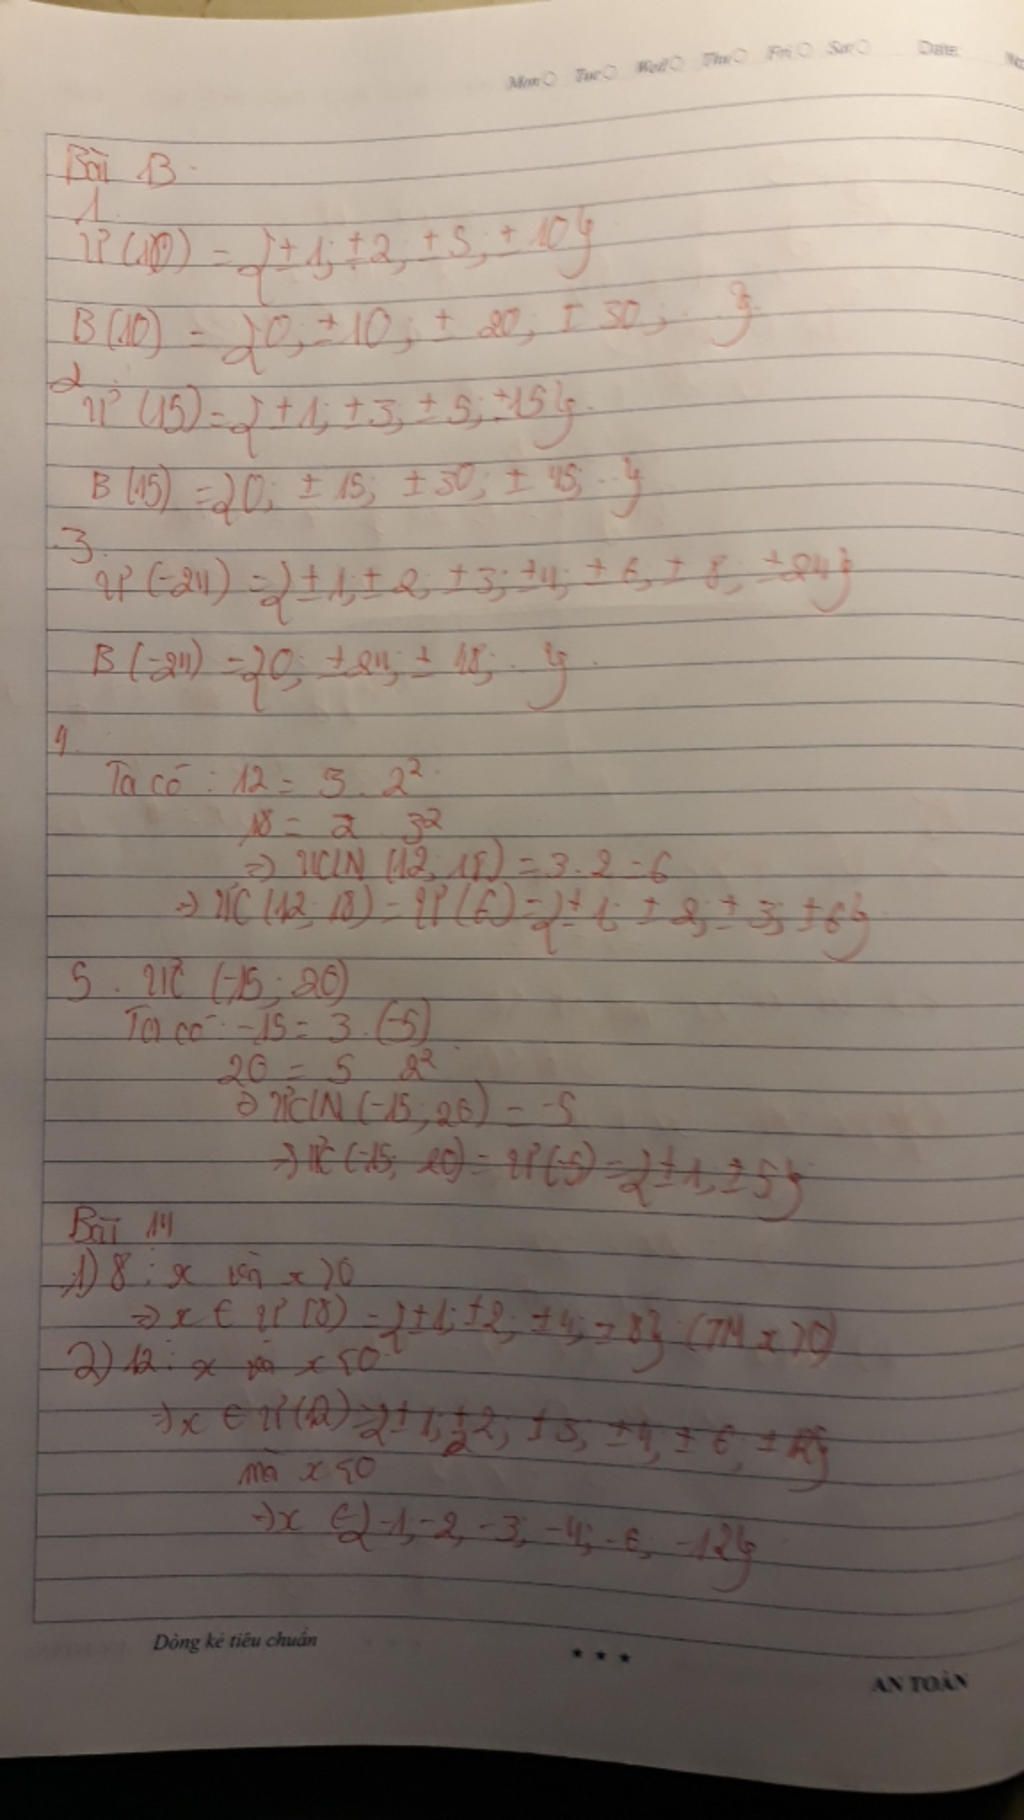 Mon Tue Wed Thu Fri Sat Date No
Bài 13.
1.
Ư(10) = {±1; ±2; ±5; ±10}
B(10) = {0; ±10; ± 20; ± 30; ..}
2.
Ư(15) = {±1; ±3; ±5; ±15}.
B(15) = {0; ± 15; ±30; ± 45; ..}
3.
Ư(-24) = {±1; ± 2; ±3; ±4; ± 6; ± 8; ±24}
B(-24) = {0; ±24; ± 18; .. }.
4.
Ta có : 12 = 3 . 2²
18 = 2 3²
=> ƯCLN (12; 18) = 3.2 = 6
=> ƯC (12; 18) = Ư(6) = {± 1; ± 2; ± 3; ±6}
5. ƯC (-15; 20)
Ta có -15 = 3.(-5)
20 = 5 2²
=> ƯCLN (-15; 20) = -5
=> ƯC (-15; 20) = Ư(-5) = {±1; ±5}
Bài 14
1) 8 ⋮ x và x>0
=> x ∈ Ư(8) = {±1; ±2; ±4; ±8} (TM x>0)
2) 12 ⋮ x và x<0
=> x ∈ Ư(12) = {±1; ±2; ±3; ±4; ± 6; ±12}
mà x<0
=> x ∈ {-1; -2; -3; -4; -6; -12}
Dòng kẻ tiêu chuẩn
* * *
AN TOÀN